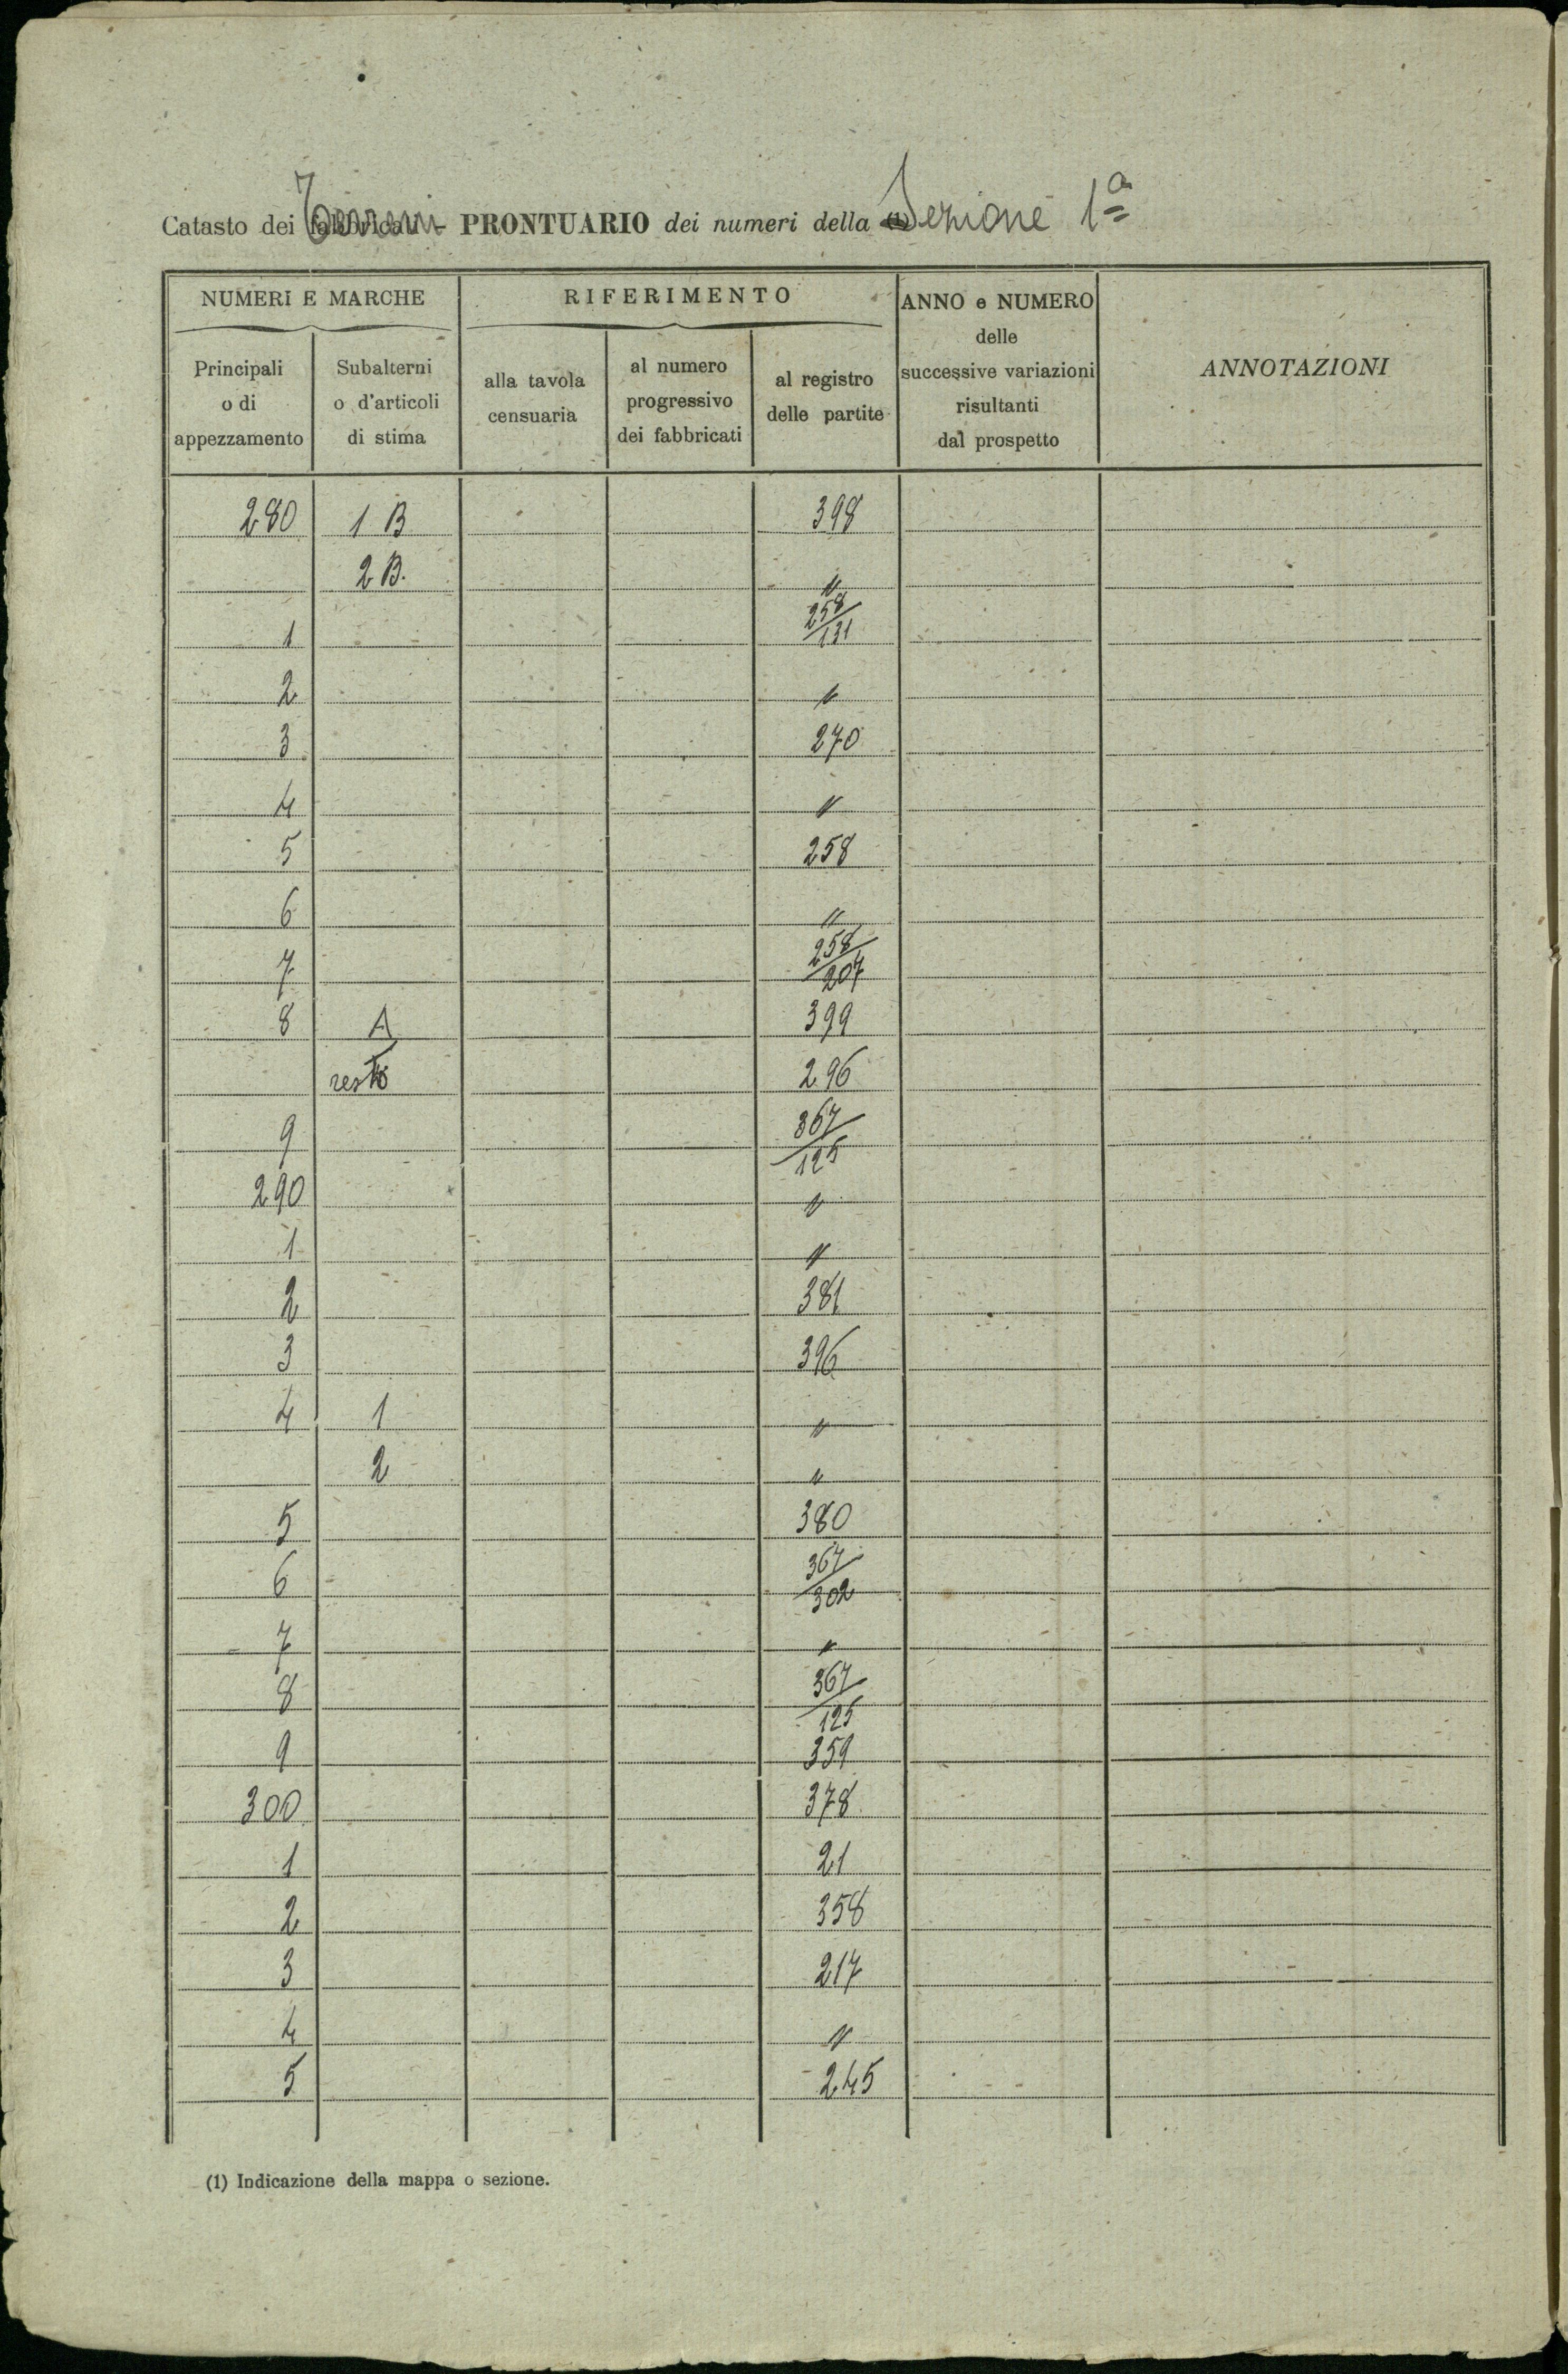 Catasto dei Terreni - PRONTUARIO dei numeri della (1) Sezione 1ª
NUMERI E MARCHE
RIFERIMENTO
ANNO e NUMERO
delle
successive variazioni
risultanti
dal prospetto
ANNOTAZIONI
Principali
o di
appezzamento
Subalterni
o d'articoli
di stima
alla tavola
censuaria
al numero
progressivo
dei fabbricati
al registro
delle partite
280 1 B 398
2 B. "
1 258/131
2 "
3 270
4 "
5 258
6 "
7 258/207
8 A 399
resto 296
9 367/125
290 "
1 "
2 381
3 396
4 1 "
2 "
5 380
6 367/302
7 "
8 367/125
9 359
300 378
1 21
2 358
3 217
4 "
5 245
(1) Indicazione della mappa o sezione.